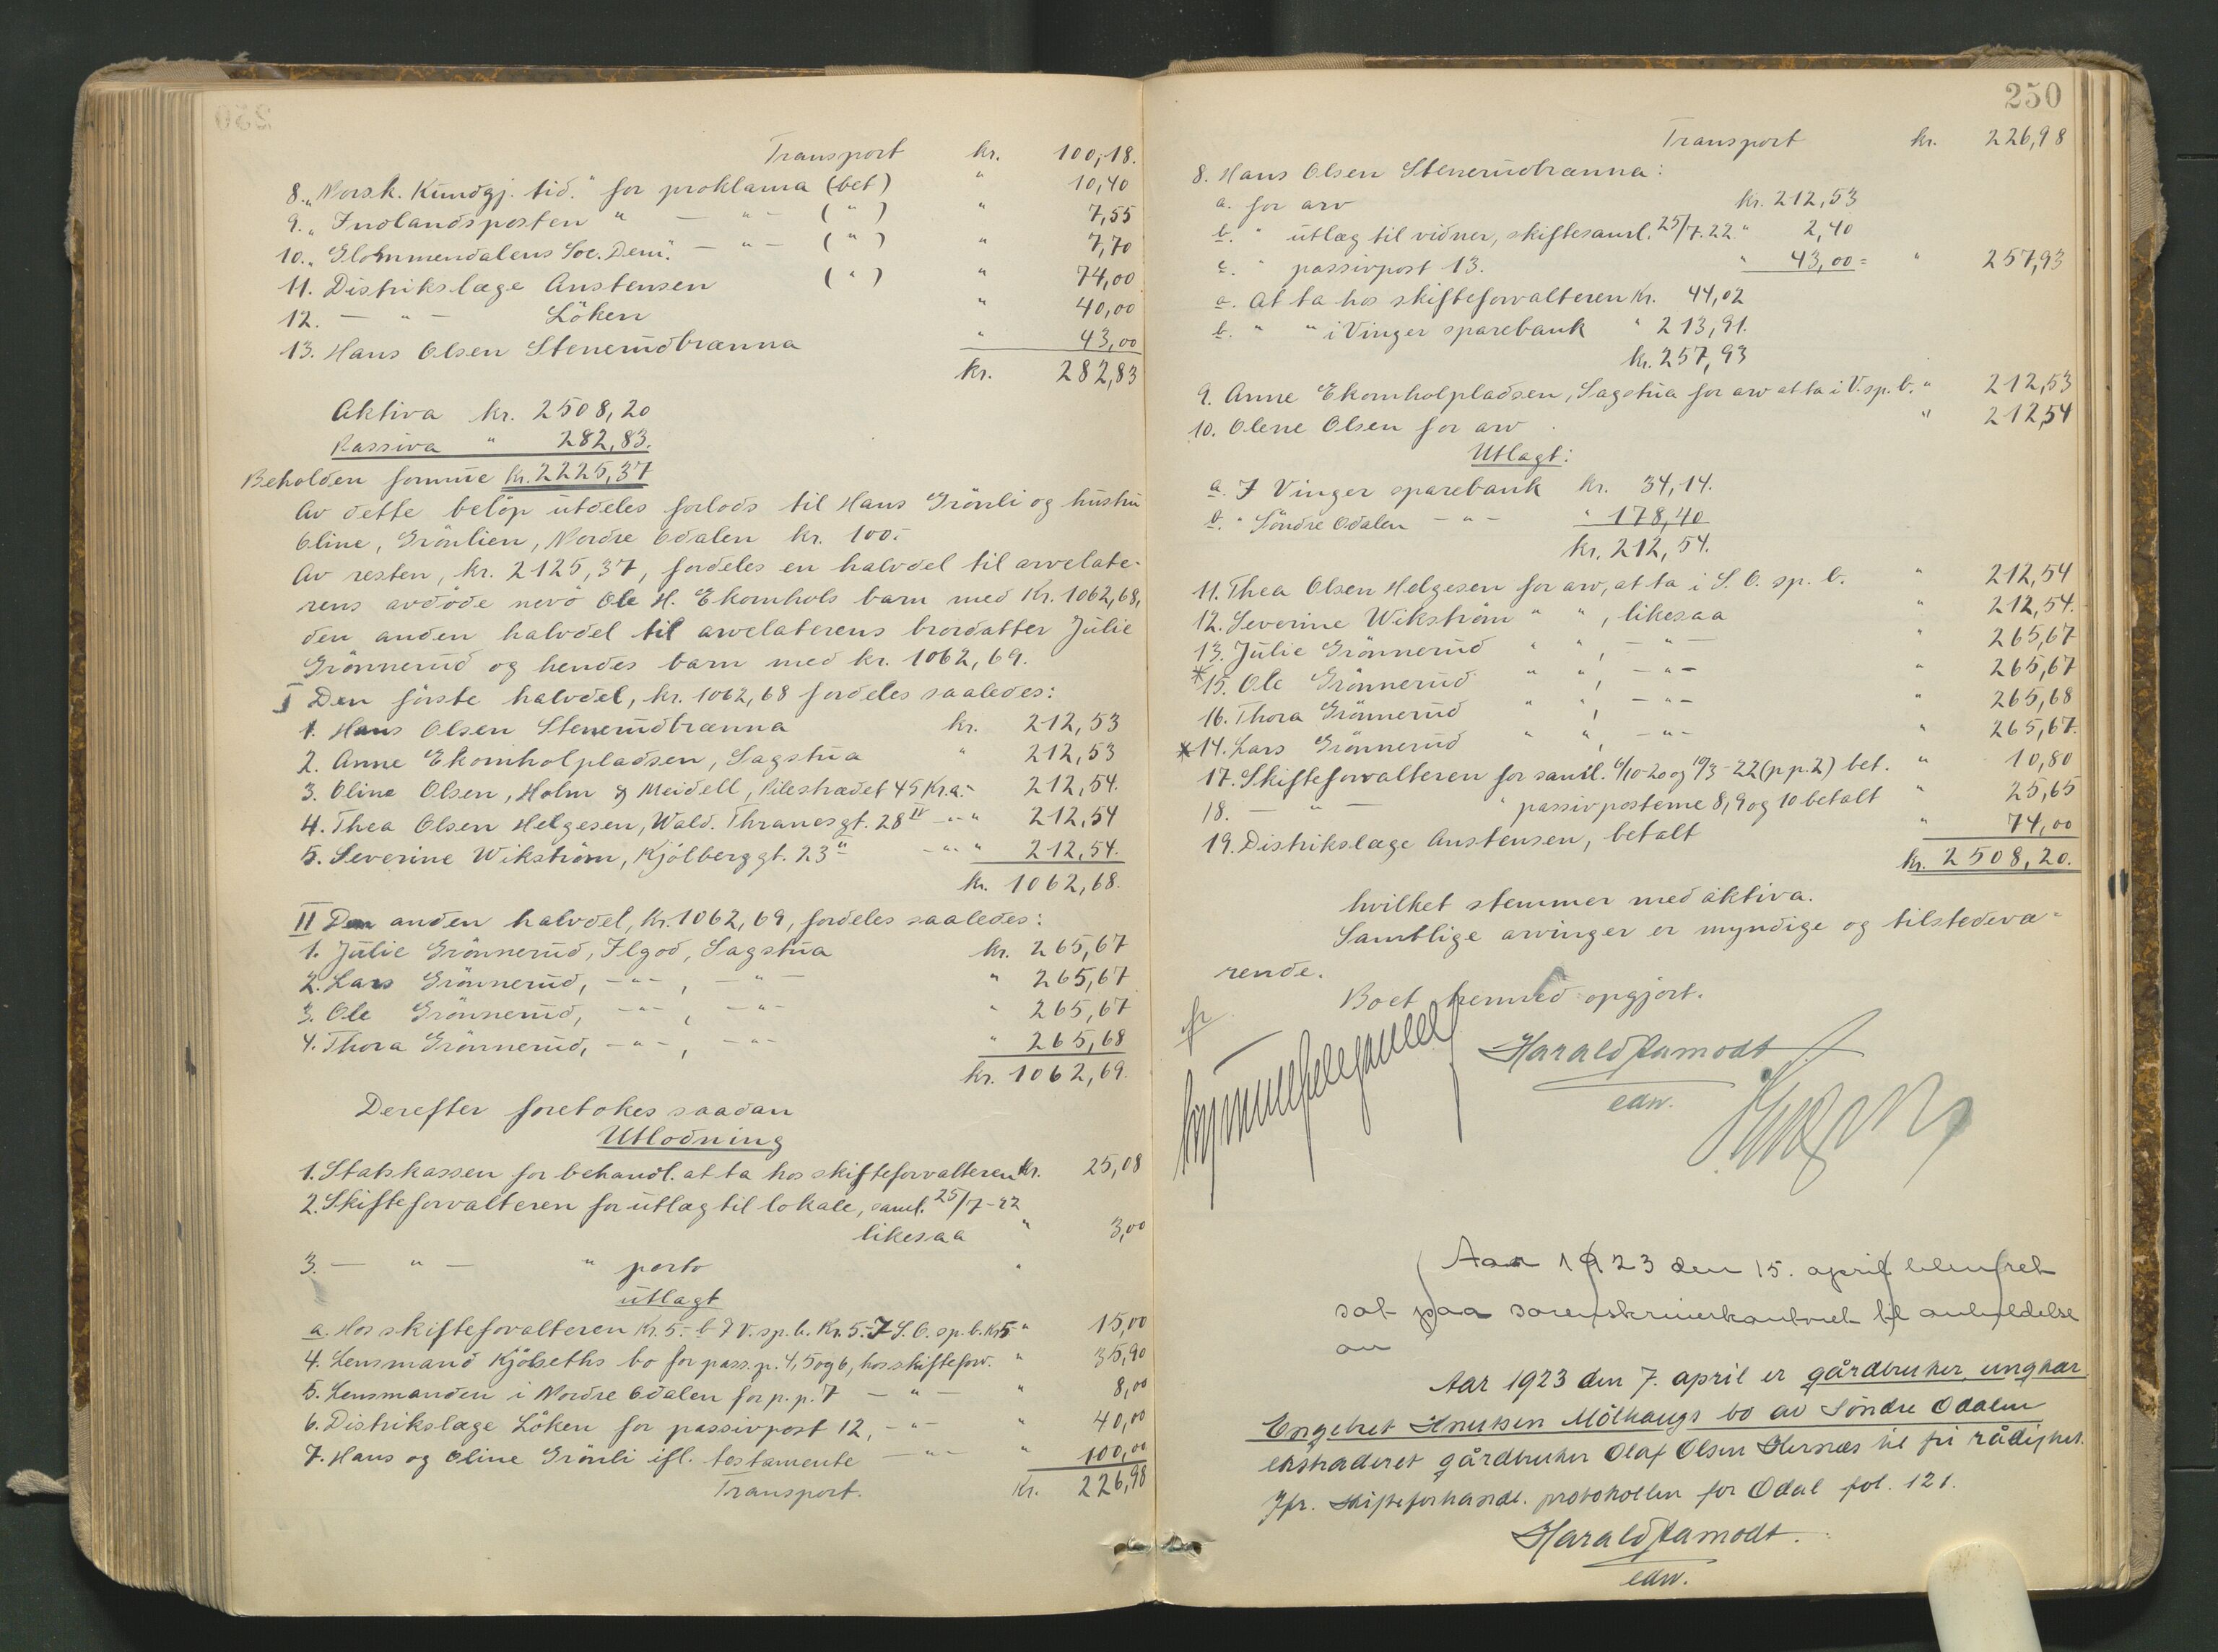 Transport kr. 100,18.
8. „Norsk. Kundgj. tid." for proklama (bet) " 10,40
9. „Indlandsposten " — " — ( " ) " 7,55
10. „Glommendalens Soc. Dem." — " — ( " ) " 7,70
11. Distrikslæge Austensen ( " ) " 74,00
12. — " — Löken " 40,00
13. Hans Olsen Stenerudbrænna " 43,00
kr. 282,83
Aktiva kr. 2508,20
Passiva " 282,83.
Beholden somme kr. 2225,37
Av dette belöp utdeles forlods til Hans Grönli og hustru
Oline, Grönlien, Nordre Odalen kr. 100.-
Av resten, kr. 2125,37, fordeles en halvdel til arvelate-
rens avdöde nevö Ole H. Ekornhols barn med kr. 1062,68,
den anden halvdel til arvelaterens brordatter Julie
Grönnerud og hendes barn med kr. 1062,69.
I Den förste halvdel, kr. 1062,68 fordeles saaledes:
1. Hans Olsen Stenerudbrænna kr. 212,53
2. Anne Ekornholpladsen, Sagstua " 212,53
3. Oline Olsen, Holm & Meidell, Pilestrædet 45 Kr.a. - 212,54.
4. Thea Olsen Helgesen, Wald. Thranesgt. 28 IV - " - " 212,54
5. Severine Wikström, Kjölberggt. 23 II - " - " 212,54.
kr. 1062,68.
II Den anden halvdel, kr. 1062,69, fordeles saaledes:
1. Julie Grönnerud, Ilgod, Sagstua kr. 265,67
2. Lars Grönnerud, - " - , - " - " 265,67
3. Ole Grönnerud, - " - , - " - " 265,67
4. Thora Grönnerud, - " - , - " - " 265,68
kr. 1062,69.
Derefter foretokes saadan
Utlodning
1. Statskassen for behandl. at ta hos skifteforvalteren kr. 25,08
2. Skifteforvalteren for utlæg til lokale, saml. 25/7-22
likesaa " 3,00
3. — " — " porto "
utlagt
a. Hos skifteforvalteren Kr. 5.- b I V. sp. b. Kr. 5.- I S. O. sp. b. Kr 5 " 15,00
4. Lensmand Kjölseths bo for pass. p. 4, 5 og 6, hos skifteforv. " 35,90
5. Lensmanden i Nordre Odalen for p. p. 7 — " — " 8,00
6. Distrikslæge Löken for passivpost 12, - " - " 40,00
7. Hans og Oline Grönli ifl. testamente - " - " 100,00
Transport. Kr. 226,98
250
Transport kr. 226,98
8. Hans Olsen Stenerudbrænna:
a. for arv kr. 212,53
b. " utlæg til vidner, skiftesaml. 25/7.22. " 2,40
c. " passivpost 13. " 43,00 = " 257,93
a. At ta hos skifteforvalteren Kr. 44,02
b. " " i Vinger sparebank " 213,91.
kr. 257,93
9. Anne Ekornholpladsen, Sagstua for arv at ta i V. sp. b. " 212,53
10. Olene Olsen for arv " 212,54
Utlagt:
a. I Vinger sparebank kr. 34,14.
b. " Söndre Odalen - " - " 178,40
kr. 212,54.
11. Thea Olsen Helgesen for arv, at ta i S. O. sp. b. " 212,54
12. Severine Wikström " " , likesaa " 212,54.
13. Julie Grönnerud " " , - " - " 265,67
*15. Ole Grönnerud " " , - " - " 265,67
16. Thora Grönnerud " " , - " - " 265,68
*14. Lars Grönnerud " " , - " - " 265,67.
17. Skifteforvalteren for saml. 6/10-20 og 10/3-22 (p p. 2) bet. " 10,80
18. — " — " passivposterne 8, 9 og 10 betalt " 25,65
19. Distrikslæge Austensen, betalt " 74,00
kr. 2508,20.
hvilket stemmer med aktiva.
Samtlige arvinger er myndige og tilstedevæ-
rende.
Boet hermed opgjort.
Harald Aamodt
edsv.
Aar 1923 den 15. april blev ret
sat paa sorenskriverkontoret til anholdelse
av
Aar 1923 den 7. april er gårdbruker, ungkar
Engebret Knutsen Mölhaugs bo av Söndre Odalen
ekstraderet gårdbruker Olaf Olsen Hernæs til fri rådighet.
Jfr. skifteforhandl. protokollen for Odal fol. 121.
Harald Aamodt.
edsv.